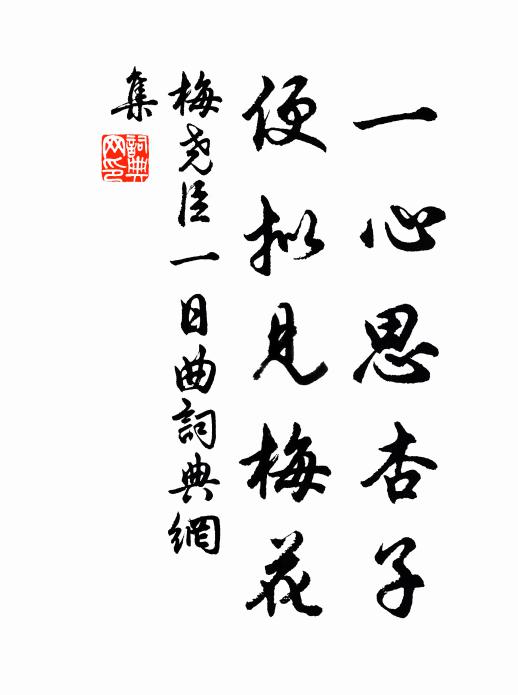 一心思杏子
便拟见梅花
梅尧臣一日曲詞典網
集
詞典网印